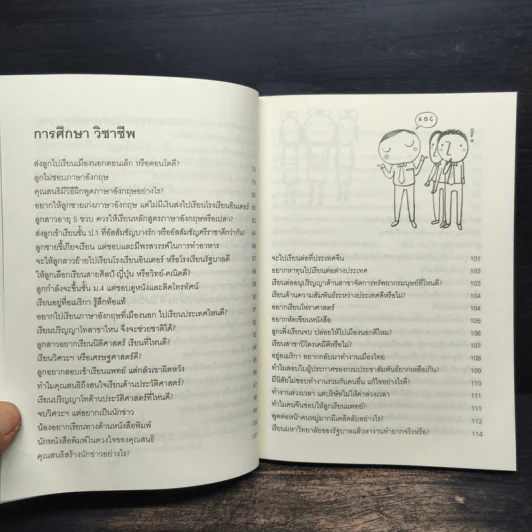 การศึกษา วิชาชีพ
ส่งลูกไปเรียนเมืองนอกตอนเล็ก หรือตอนโตดี?
ลูกไม่ชอบภาษาอังกฤษ
คุณสนธิมีวิธีฝึกพูดภาษาอังกฤษอย่างไร?
อยากให้ลูกชายเก่งภาษาอังกฤษ แต่ไม่มีเงินส่งไปเรียนโรงเรียนอินเตอร์
ลูกสาวอายุ 5 ขวบ ควรให้เรียนหลักสูตรภาษาอังกฤษหรือเปล่า?
ส่งลูกเข้าเรียนชั้น ป.1 ที่อัสสัมชัญบางรัก หรืออัสสัมชัญศรีราชาดีกว่ากัน?
ลูกชายขี้เกียจเรียน แต่ชอบและมีพรสวรรค์ในการทำอาหาร
จะให้ลูกสาวย้ายไปเรียนโรงเรียนอินเตอร์ หรือโรงเรียนรัฐบาลดี
ให้ลูกเลือกเรียนสายศิลป์-ญี่ปุ่น หรือวิทย์-คณิตดี?
ลูกกำลังจะขึ้นชั้น ม.4 แต่ชอบดูหนังและติดโทรทัศน์
เรียนอยู่ที่อเมริกา รู้สึกท้อแท้
อยากไปเรียนภาษาอังกฤษที่เมืองนอก ไปเรียนประเทศไหนดี?
เรียนปริญญาโทสาขาไหน จึงจะช่วยชาติได้?
ลูกสาวอยากเรียนนิติศาสตร์ เรียนที่ไหนดี?
เรียนวิศวะฯ หรือเศรษฐศาสตร์ดี?
ลูกอยากสอบเข้าเรียนแพทย์ แต่กลัวเขาผิดหวัง
ทำไมคุณสนธิถึงสนใจเรียนด้านประวัติศาสตร์?
เรียนปริญญาโทด้านประวัติศาสตร์ที่ไหนดี?
จบวิศวะฯ แต่อยากเป็นนักข่าว
น้องอยากเรียนทางด้านหนังสือพิมพ์
นักหนังสือพิมพ์ในดวงใจของคุณสนธิ
คุณสนธิสร้างนักข่าวอย่างไร?
ABC
!
จะไปเรียนต่อที่ประเทศจีน 101
อยากหาทุนไปเรียนต่อต่างประเทศ 102
เรียนต่ออนุปริญญาด้านสาขาจัดการทรัพยากรมนุษย์ที่ไหนดี? 103
เรียนด้านความสัมพันธ์ระหว่างประเทศดีหรือไม่? 104
อยากเรียนโหราศาสตร์ 105
อยากหัดเขียนหนังสือ 106
ลูกเพิ่งเรียนจบ ปล่อยให้ไปเมืองนอกดีไหม? 106
เรียนสาขาปิโตรเคมีดีหรือไม่? 107
อยู่อเมริกา อยากกลับมาทำงานเมืองไทย 108
ทำไมสอบใบผู้ประกาศของกรมประชาสัมพันธ์ยากเหลือเกิน? 109
มีนิสัยไม่ชอบทำงานร่วมกับคนอื่น แก้ไขอย่างไรดี? 110
ทำงานล่วงเวลา แต่บริษัทไม่ให้ค่าล่วงเวลา 111
ทำไมคนจีนชอบให้ลูกเรียนแพทย์? 111
พูดต่อหน้าคนหมู่มากมีเคล็ดลับอย่างไร? 112
เรียนมหาวิทยาลัยของรัฐบาลแล้วหางานทำยากจริงหรือ? 114